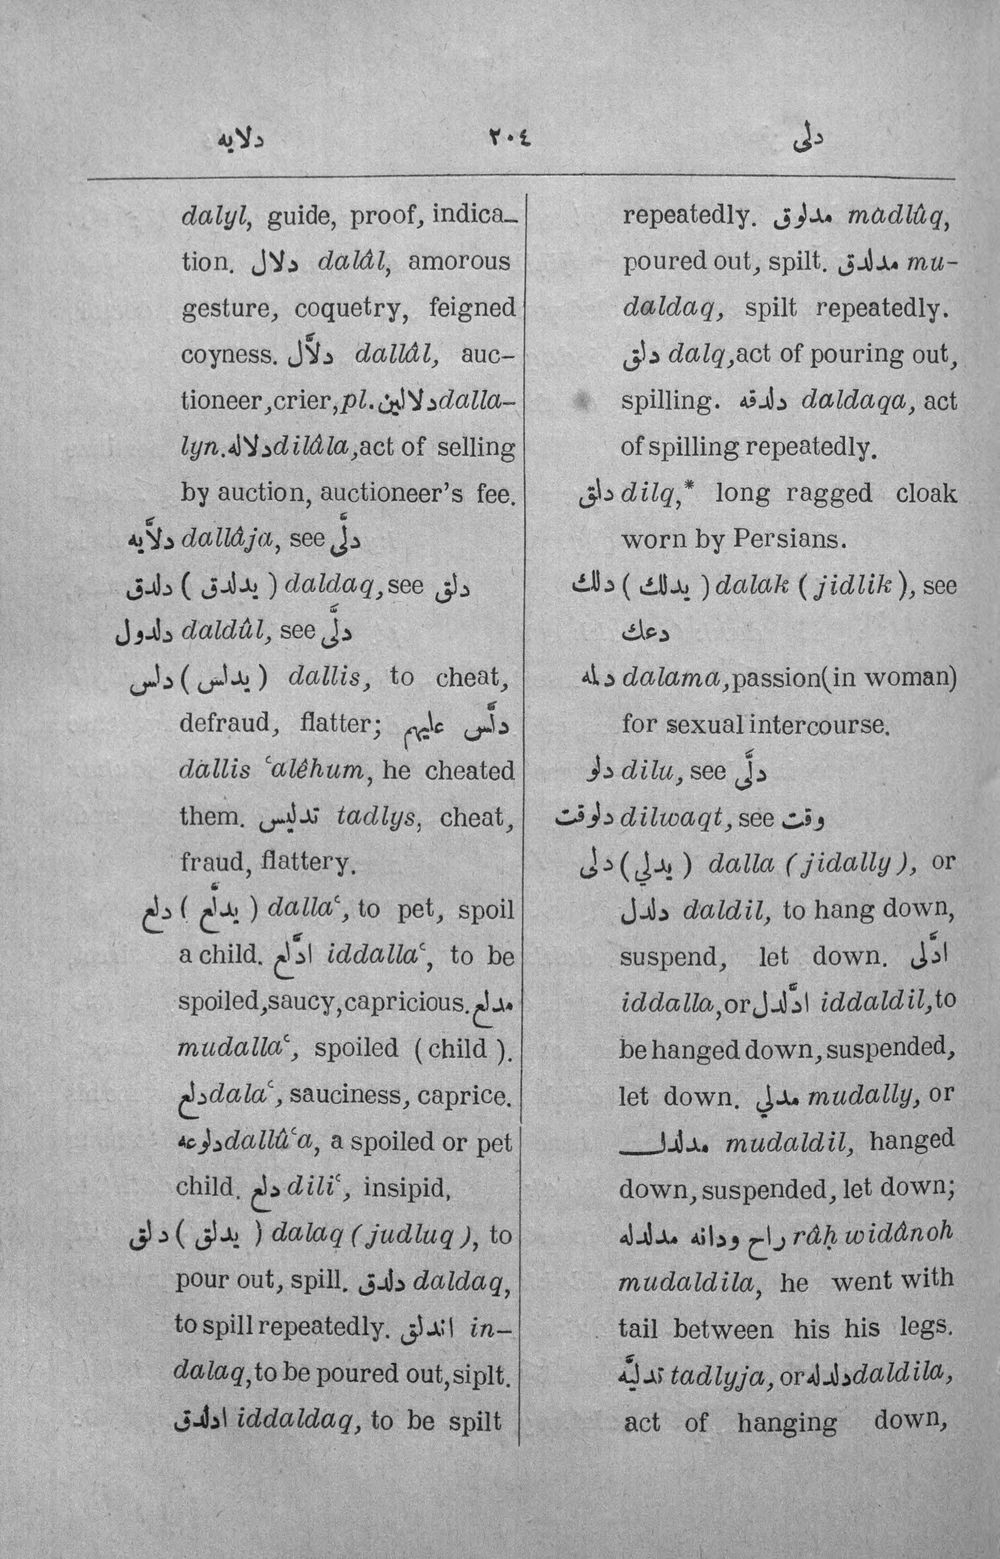 دلايه ٢٠٤ دلى
dalyl, guide, proof, indica-
tion. دلال dalâl, amorous
gesture, coquetry, feigned
coyness. دلاَّل dallâl, auc-
tioneer,crier,pl. دلالين dalla-
lyn. دلاله dilâla,act of selling
by auction, auctioneer's fee.
دلاَّيه dallâja, see دلَّى
دلدق ( يدلدق ) daldaq, see دلق
دلدول daldûl, see دلَّى
دلس ( يدلس ) dallis, to cheat,
defraud, flatter; دلَّس عليهم
dallis ʿalêhum, he cheated
them. تدليس tadlys, cheat,
fraud, flattery.
دلع ( يدلَّع ) dallaʿ, to pet, spoil
a child. ادَّلع iddallaʿ, to be
spoiled,saucy,capricious. مدلع
mudallaʿ, spoiled (child ).
دلع dalaʿ, sauciness, caprice.
دلوعه dallûʿa, a spoiled or pet
child. دلع diliʿ, insipid,
دلق ( يدلق ) dalaq (judluq), to
pour out, spill. دلدق daldaq,
to spill repeatedly. اندلق in-
dalaq, to be poured out, siplt.
ادلدق iddaldaq, to be spilt
repeatedly. مدلوق madlûq,
poured out, spilt. مدلدق mu-
daldaq, spilt repeatedly.
دلق dalq,act of pouring out,
spilling. دلدقه daldaqa, act
of spilling repeatedly.
دلق dilq,* long ragged cloak
worn by Persians.
دلك ( يدلك ) dalak (jidlik), see
دعك
دلمه dalama,passion(in woman)
for sexual intercourse.
دلو dilu, see دلَّى
دلوقت dilwaqt, see وقت
دلى ( يدلي ) dalla (jidally), or
دلدل daldil, to hang down,
suspend, let down. ادَّلى
iddalla,or ادَّلدل iddaldil,to
be hanged down, suspended,
let down. مدلي mudally, or
مدلدل mudaldil, hanged
down, suspended, let down;
راح ودانه مدلدله râḥ widânoh
mudaldila, he went with
tail between his his legs.
تدليَّه tadlyja, or دلدله daldila,
act of hanging down,